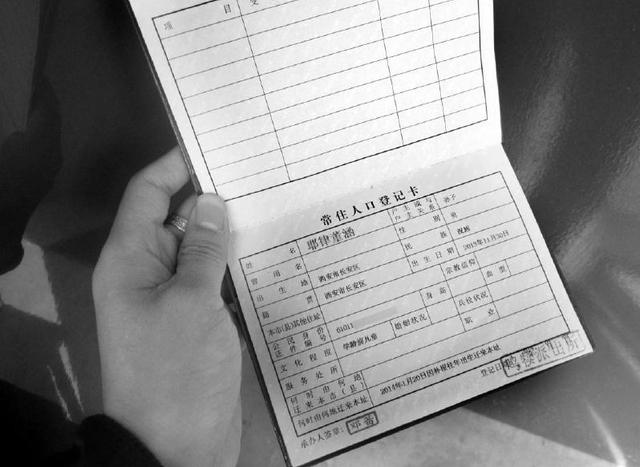 项 目
常住人口登记卡
姓名 耶律董涵 户主或与户主关系 孙子
曾用名 性别 男
出生地 西安市长安区 民族
籍贯 西安市长安区 出生日期 2013年11月30日
本市(县)其他住址 宗教信仰
公民身份证件编号 61011 身高 血型
文化程度 学龄前儿童 婚姻状况 兵役状况
服务处所 职业
何时由何地迁来本市(县)
何时由何地迁来本址 2014年1月20日因补报往年出生迁来本址
承办人签章: 登记日期